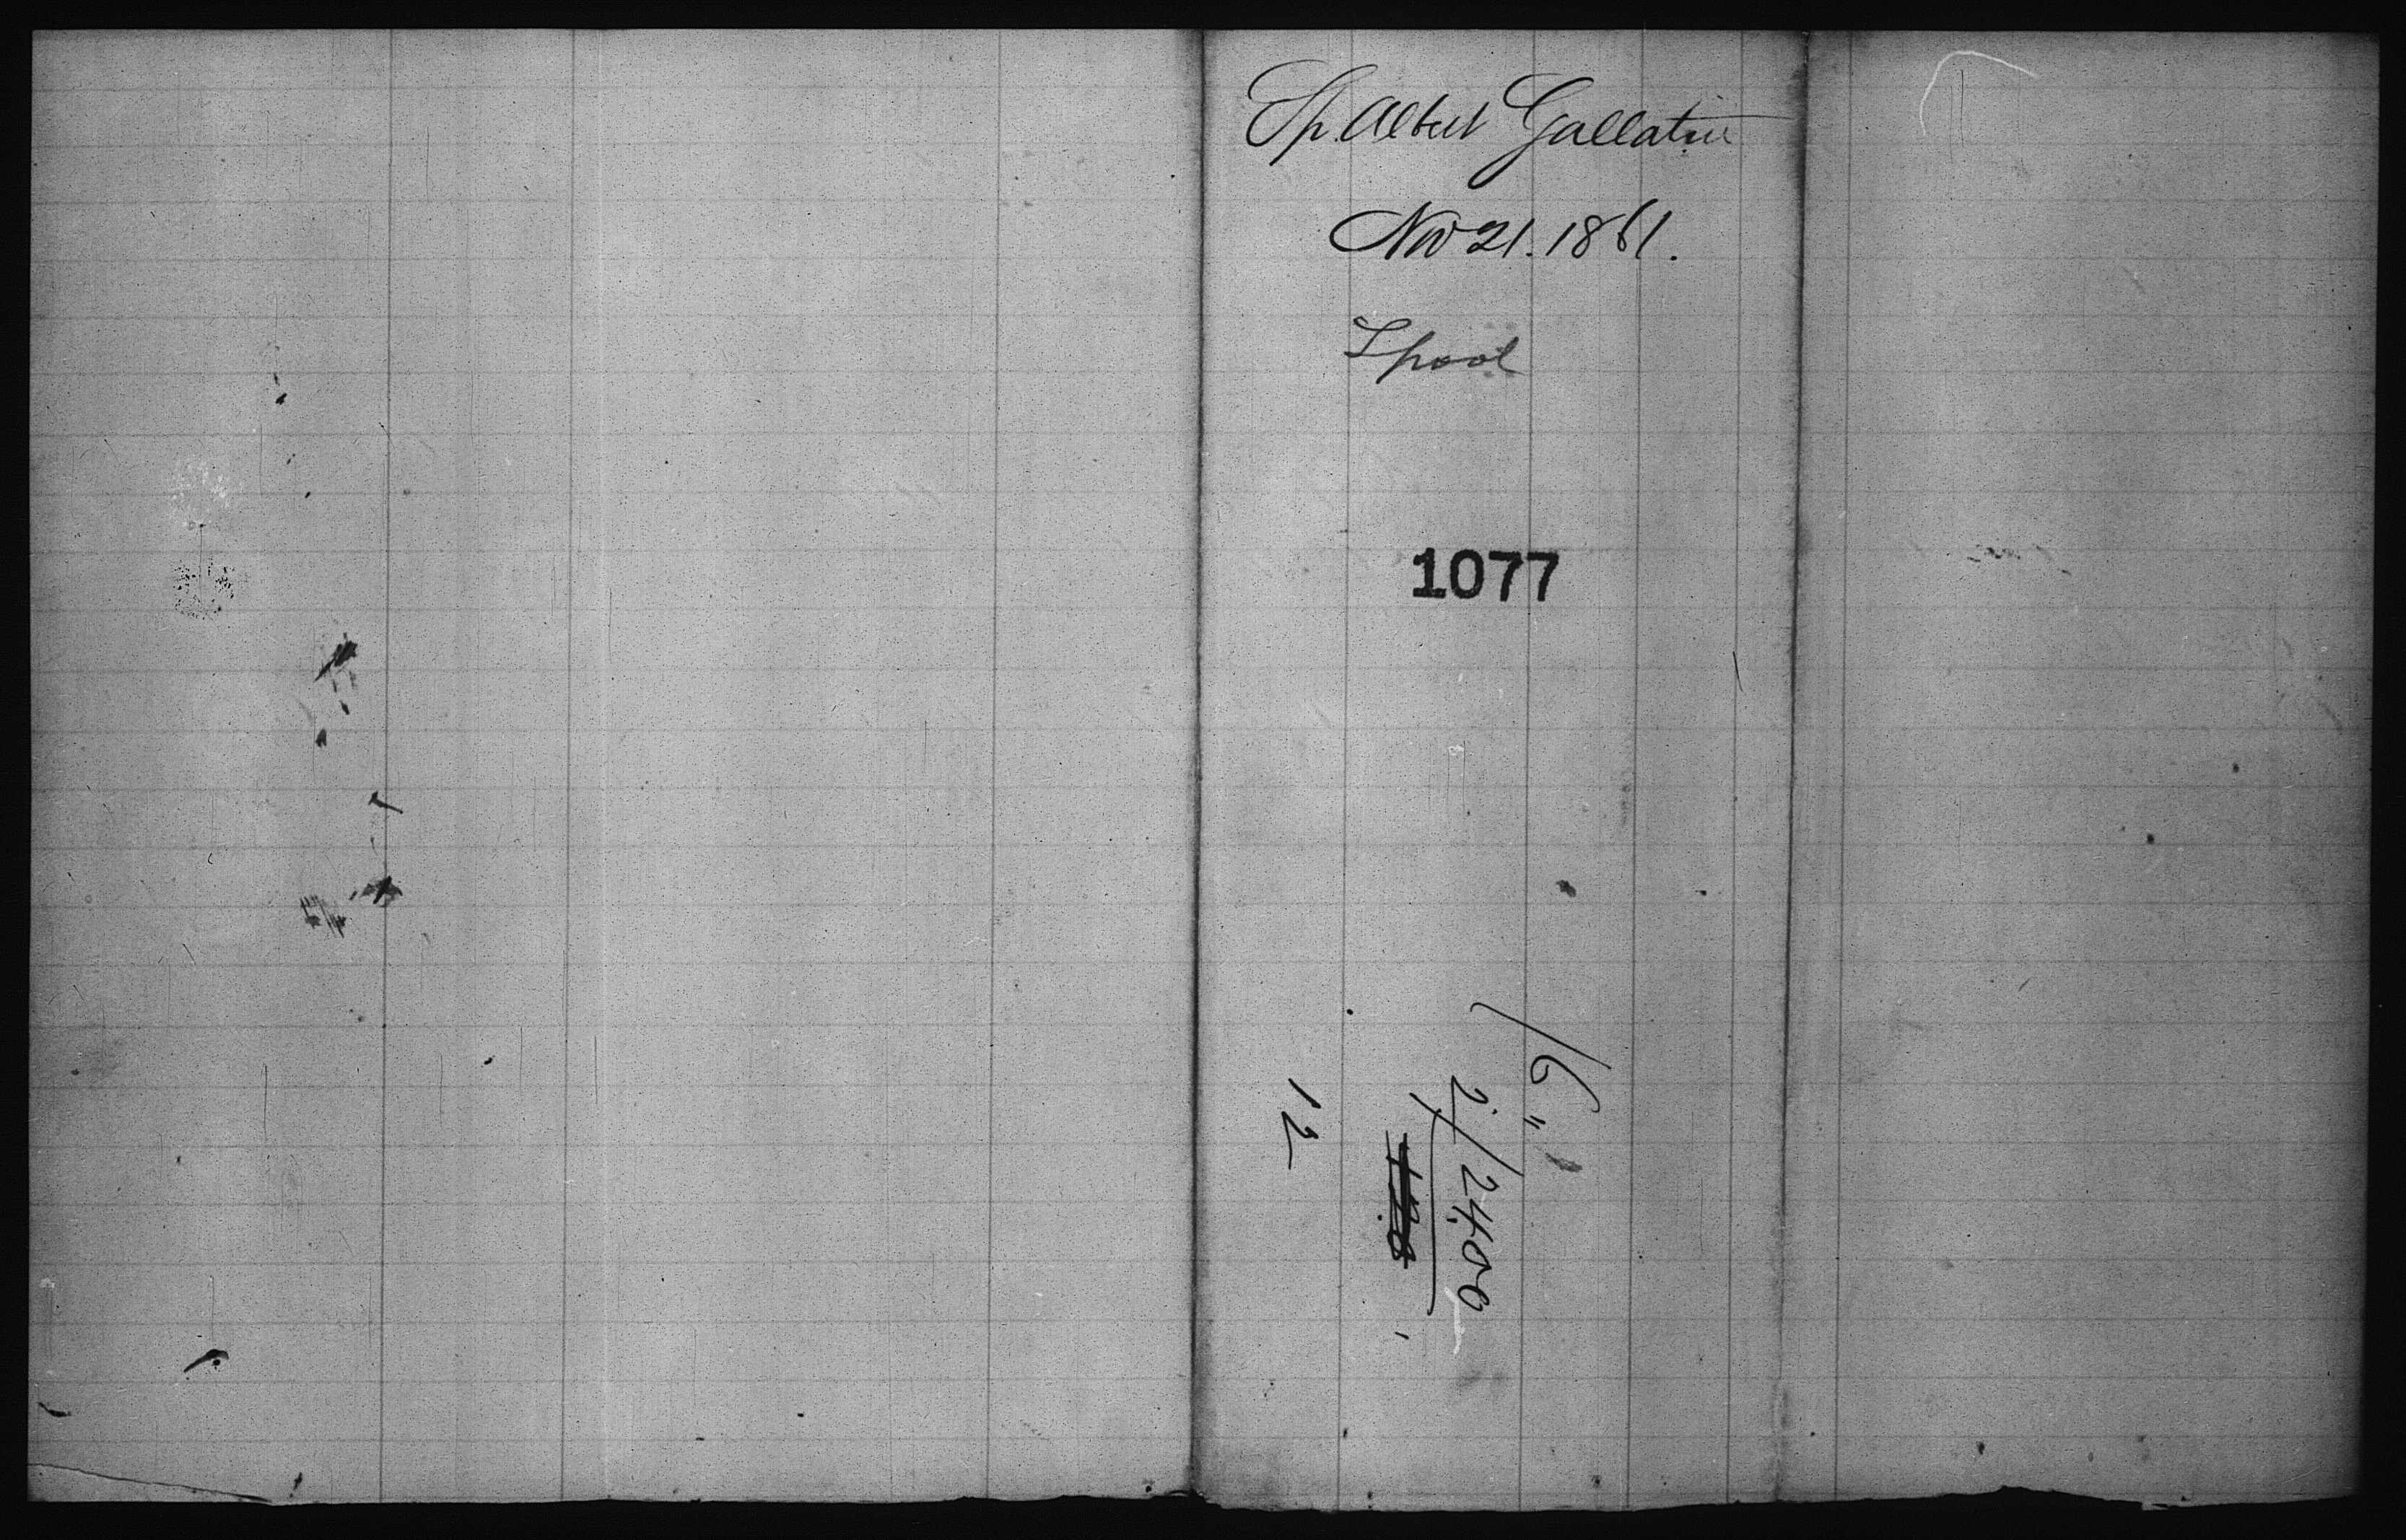 Sp. Albert Gallatin
Nov 21. 1861.
Lpool
1077
16 "
2/2400
12